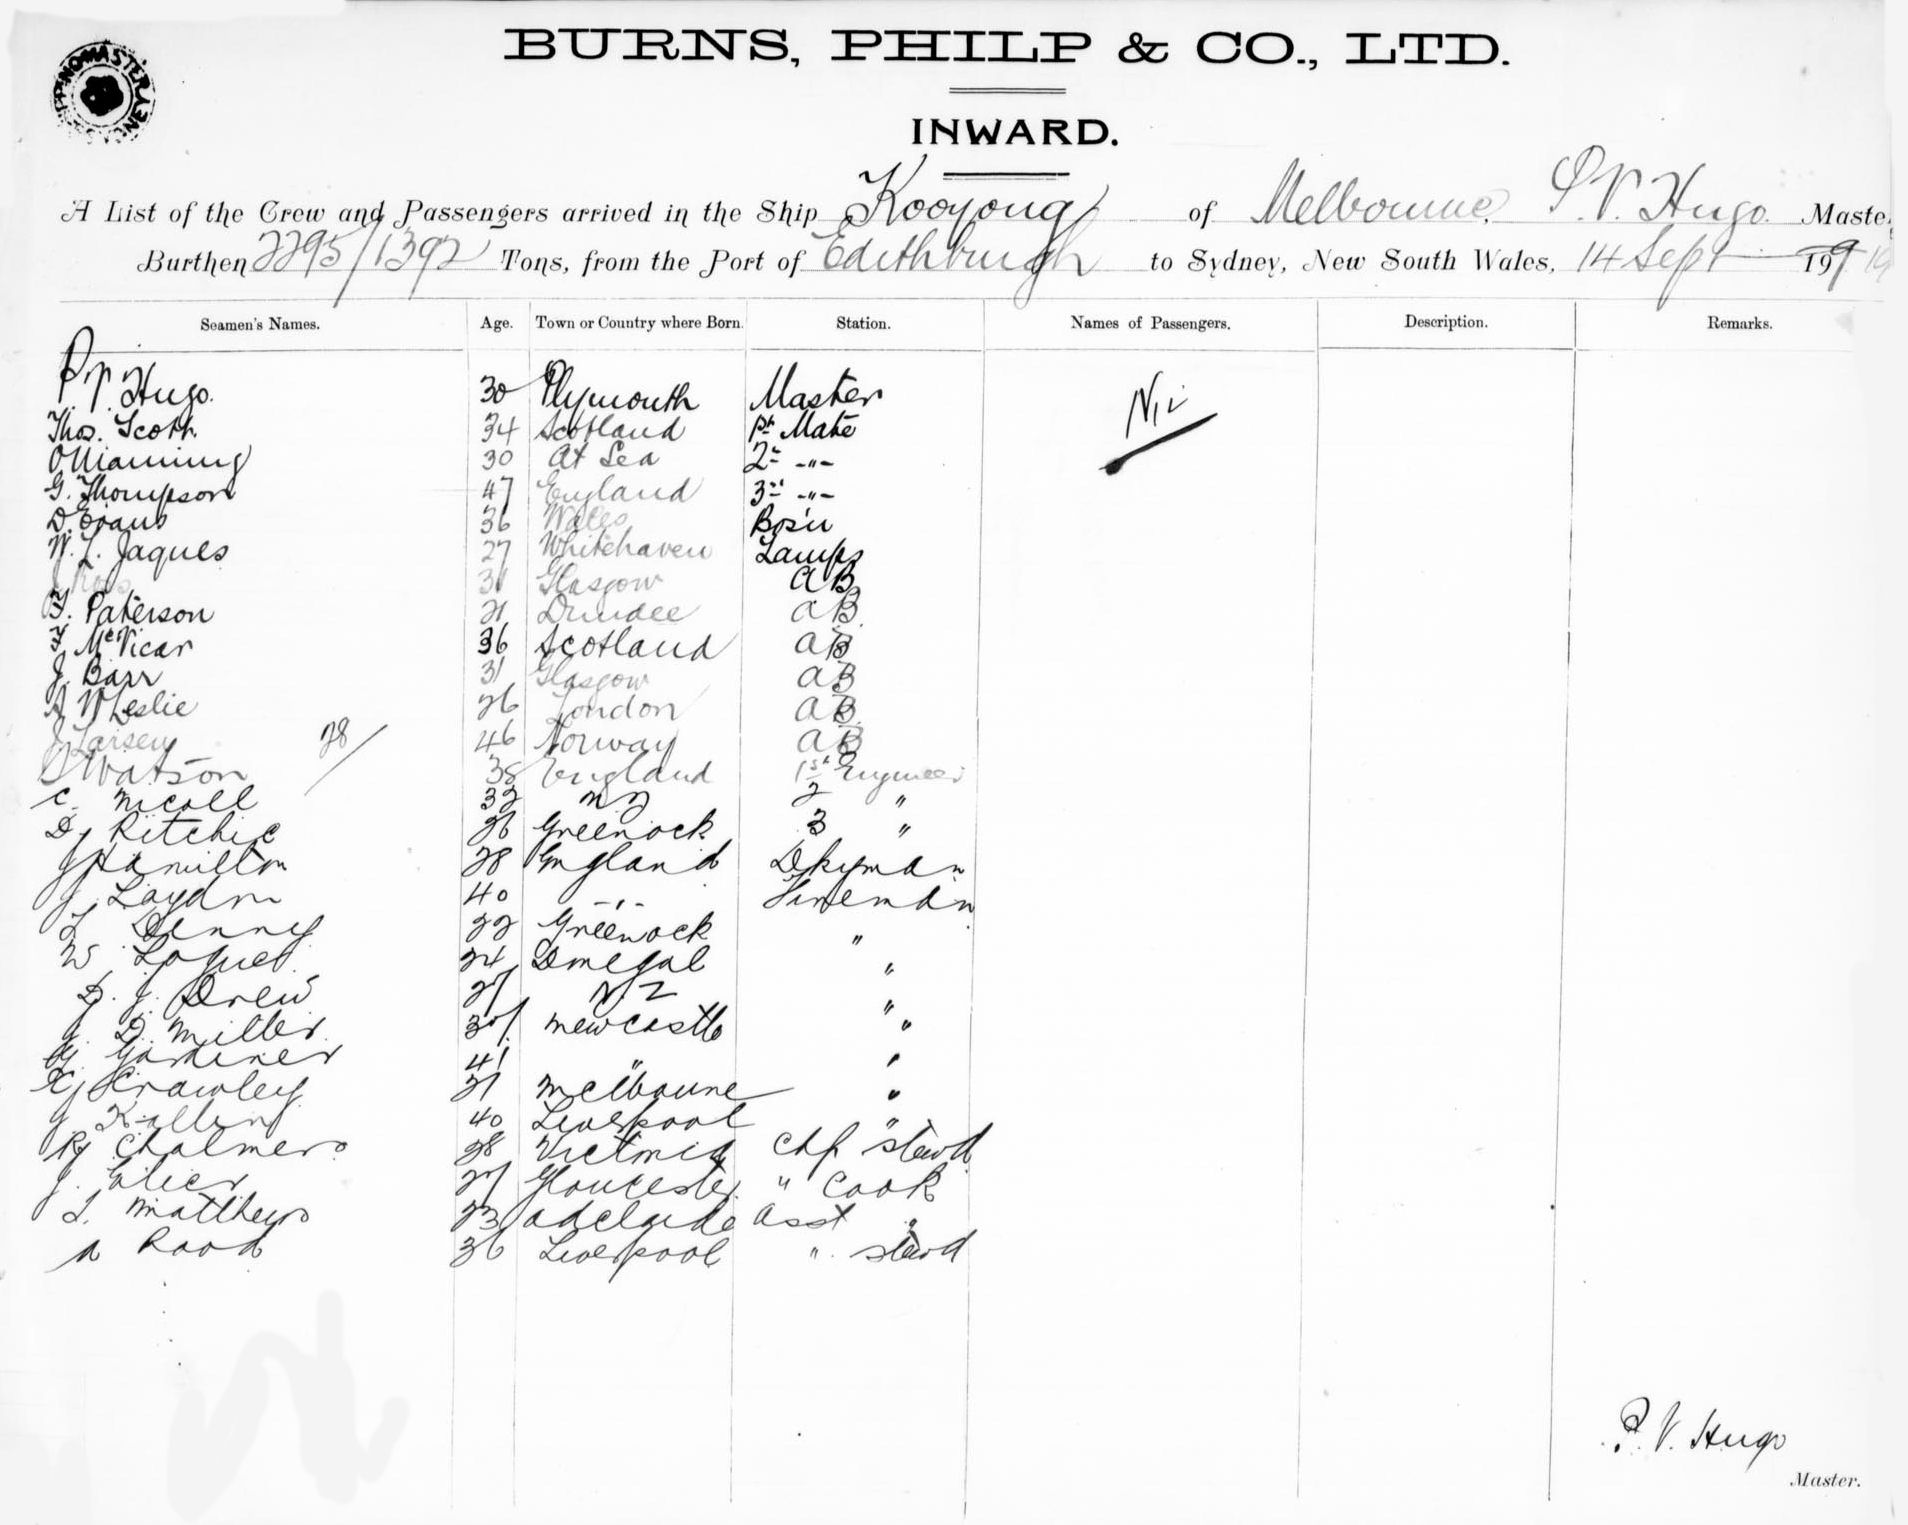 BURNS, PHILP & CO., LTD.
INWARD.
A List of the Crew and Passengers arrived in the Ship Kooyong of Melbourne, P. V. Hugo. Master
Burthen 2295/1392 Tons, from the Port of Edithburgh to Sydney, New South Wales, 14 Sept 1919
Seamen's Names. Age. Town or Country where Born. Station. Names of Passengers. Description. Remarks.
P. V. Hugo. 30 Plymouth Master Nil
Thos. Scott. 34 Scotland 1st Mate
O Manning 30 At Sea 2nd -"-
G. Thompson 47 England 3rd -"-
D. Evans 36 Wales Bos'n
W. L. Jaques 27 Whitehaven Lamps
J Ross 31 Glasgow AB
F. Paterson 21 Dundee AB
F. McVicar 36 Scotland AB
J. Barr 31 Glasgow AB
A W Leslie 26 London AB
J Larsen 28/ 46 Norway AB
Watson 38 England 1st Engineer
C. Nicoll 32 NZ 2 "
D J Ritchie 26 Greenock 3 "
J Hamilton 28 England Dkyman
J. Laydon 40 -"- Fireman
Denny 22 Greenock "
W Logue 24 Donegal "
D. J. Drew 27 NZ "
J. D. Miller 30 Newcastle "
Gardiner 41 " "
Crawley 21 Melbourne "
J 40 Liverpool "
R J Chalmers 28 Victoria Chf Stewd
J. 27 Gloucester " Cook
L. Matthews 23 Adelaide Asst "
A Rood 36 Liverpool " Stewd
P. V. Hugo
Master.